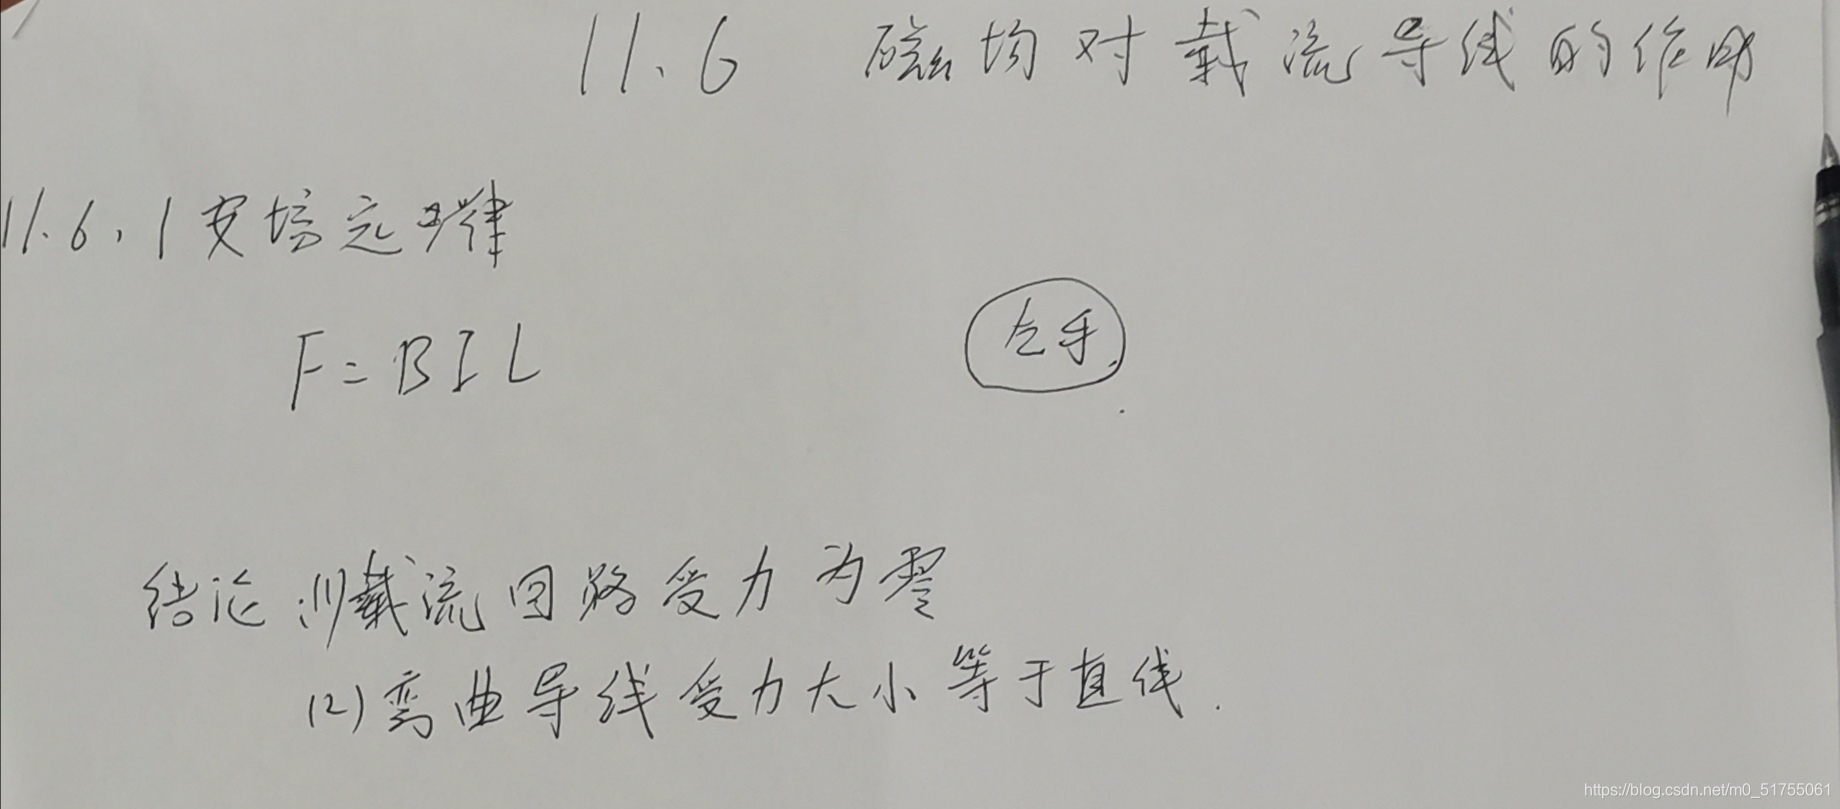 11.6 磁场对载流导线的作用
11.6.1安培定律
F=BIL
左手
结论:(1)载流回路受力为零
(2)弯曲导线受力大小等于直线.
https://blog.csdn.net/m0_51755061